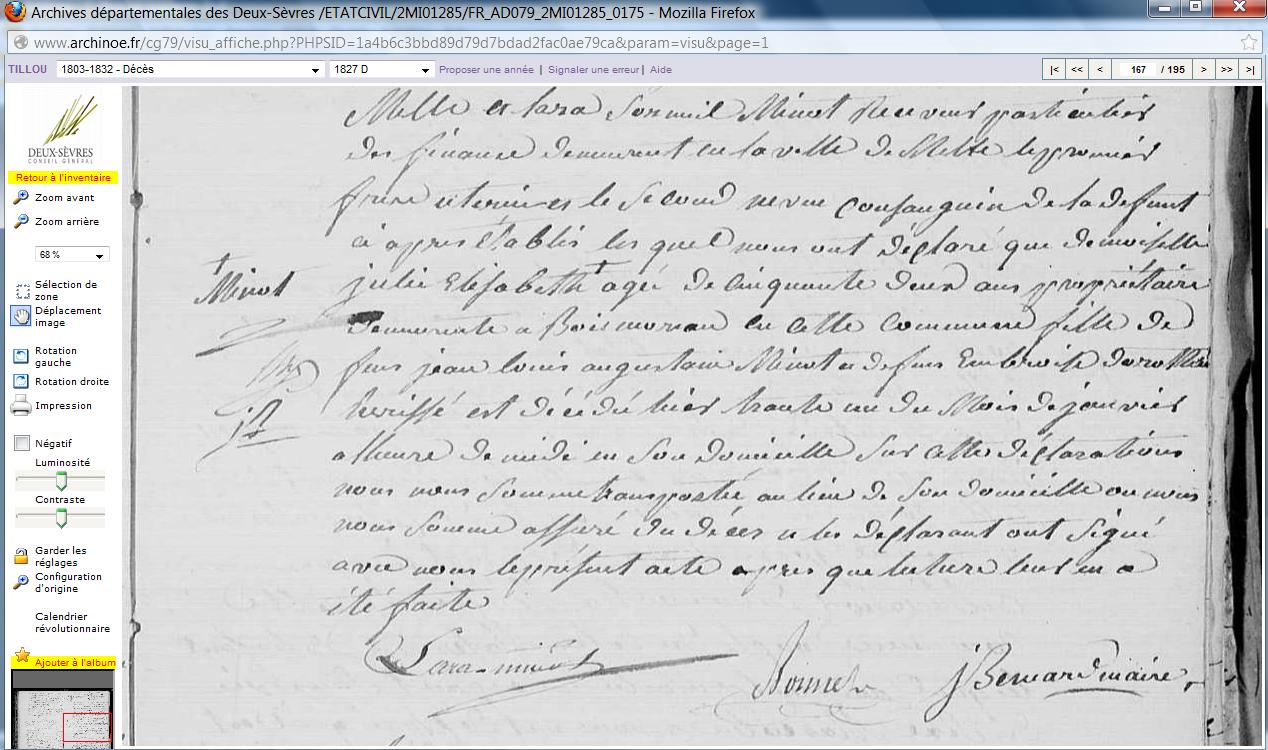 Archives départementales des Deux-Sèvres /ETATCIVIL/2MI01285/FR_AD079_2MI01285_0175 - Mozilla Firefox
www.archinoe.fr/cg79/visu_affiche.php?PHPSID=1a4b6c3bbd89d79d7bdad2fac0ae79ca&param=visu&page=1
TILLOU 1803-1832 - Décès 1827 D Proposer une année | Signaler une erreur | Aide |< << < 167 / 195 > >> >|
DEUX-SÈVRES
CONSEIL GÉNÉRAL
Retour à l'inventaire
Zoom avant
Zoom arrière
68 %
Sélection de
zone
Déplacement
image
Rotation
gauche
Rotation droite
Impression
Négatif
Luminosité
Contraste
Garder les
réglages
Configuration
d'origine
Calendrier
révolutionnaire
Ajouter à l'album
Minot
Melle et Lara Minot Receveur particulier
des finance demeurent en la ville de Melle le premier
frere uterin et le Second neveu consanguin de la defunt
ci apres établis les quel nous ont déclaré que demoiselle
julie Elisabeth agée de cinquante deux ans propriétaire
demeurente a Boismoreau en cette commune fille de
feus jean louis augustain Minot et de feus dorothée
herissé est décédé hier trante un du Mois de janvier
a lheure de midi en son domicille Sur cette déclarations
nous nous somme transporté au lieu de son domicille ou nous
nous somme assuré du déces et les déclarant ont signé
avec nous le présent acte apres que lecture leur en a
été faite
Lara-minot
Bonnet
J Bernard maire